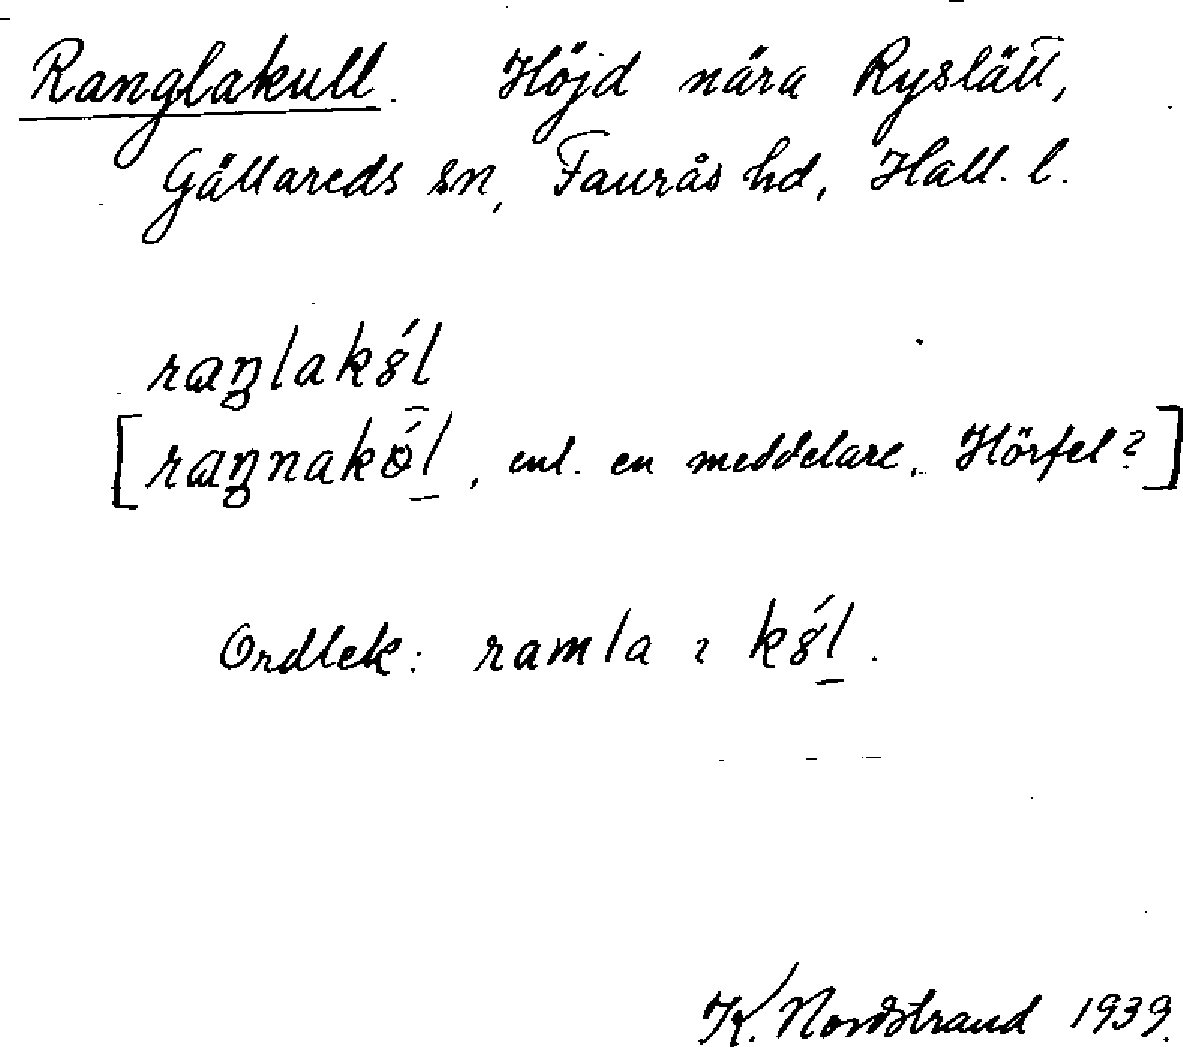 Ranglakull. Höjd nära Ryslätt,
Gällareds sn, Faurås hd, Hall. l.
raŋlakȣ́l
[raŋnakǿl, enl. en meddelare. Hörfel?]
Ordlek: ramla ı kȣ́l.
K. Nordstrand 1939.